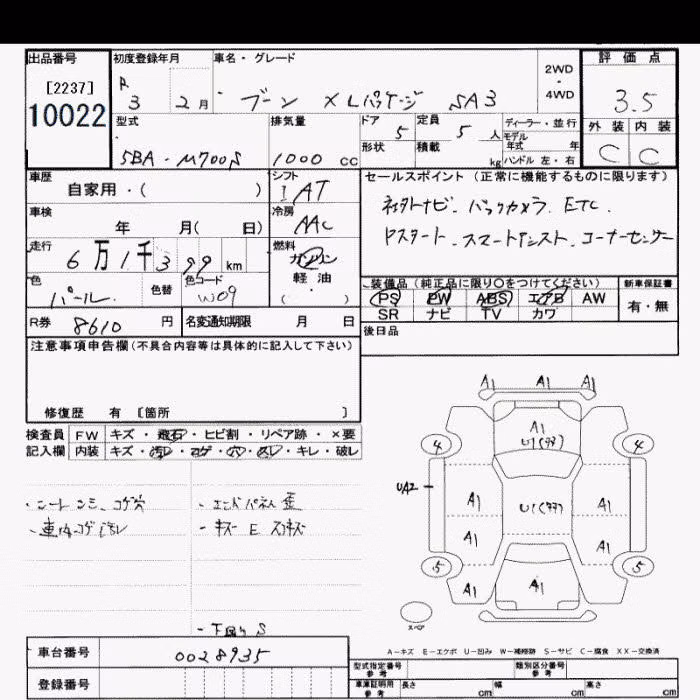 出品番号 初度登録年月 車名・グレード 2WD・4WD 評価点
[2237]
10022
R 3 2月 ブーン X Lパッケージ SA3 3.5
型式 排気量 ドア 5 定員 5 人 ディーラー・並行 外装 内装
形状 積載 kg モデル年式 年
5BA-M700S 1000 CC ハンドル 左・右 C C
車歴 シフト セールスポイント (正常に機能するものに限ります)
自家用・( ) IAT
社外ナビ. バックカメラ. ETC.
車検 年 月( 日) 冷房 AAC
Pスタート. スマートアシスト. コーナーセンサー
走行 6万1千399km 燃料 ガソリン
軽・油
( )
色 色替 色コード
パール W09
装備品 (純正品に限り○をつけてください) 新車保証書
PS PW ABS エアB AW 有・無
SR ナビ TV カワ
R券 8610 円 名変通知期限 月 日
後日品
注意事項申告欄(不具合内容等は具体的に記入して下さい)
修復歴 有 [箇所 ]
検査員 FW キズ・飛石・ヒビ割・リペア跡・×要
記入欄 内装 キズ・汚レ・コゲ・穴・スレ・キレ・破レ
・シートシミ、コゲ穴
・車内コゲ汚レ
・エンドパネル歪
・キズ E スリキズ
・下回り S
A1 A1 A1
A1
U1(ワワ)
4 4
UA2
A1 U1(ワワ) A1
A1 A1
5 5
A1 A1 A1
スペア
A-キズ E-エクボ U-凹み W-補修跡 S-サビ C-腐食 XX-交換済
車台番号 0028935
登録番号
型式指定番号 参考 類別区分番号 参考
車庫証明用 参考 長さ cm 幅 cm 高さ cm